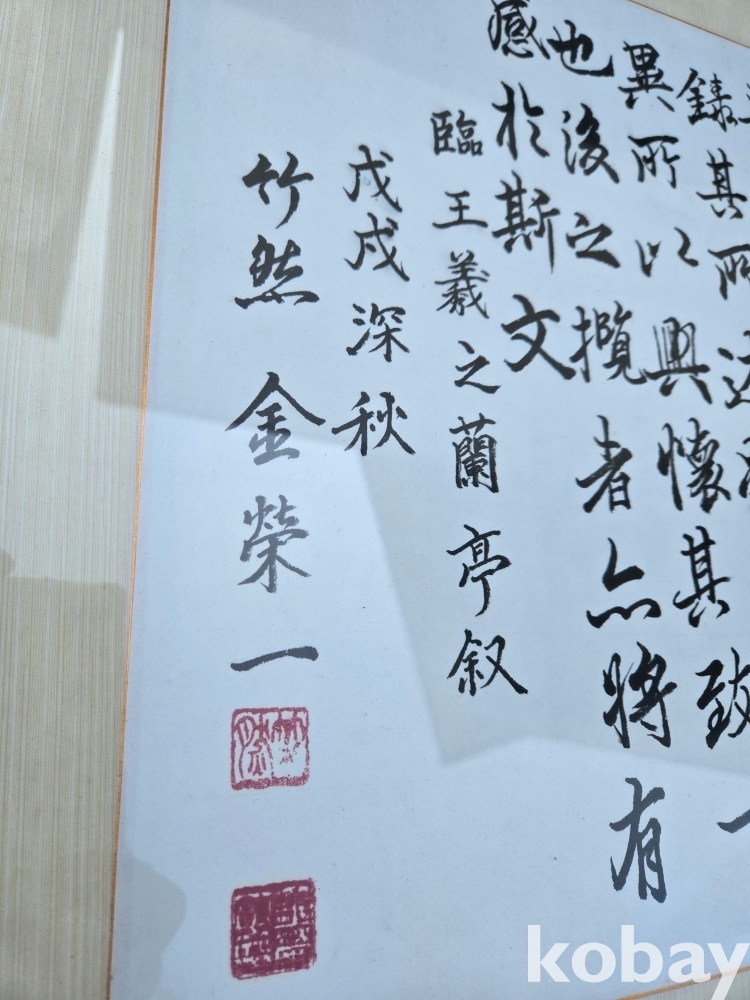 錄其所述
異所以興懷其致一
也後之攬者亦將有
感於斯文
臨王羲之蘭亭叙
戊戌深秋
竹然 金榮一
竹然
kobay